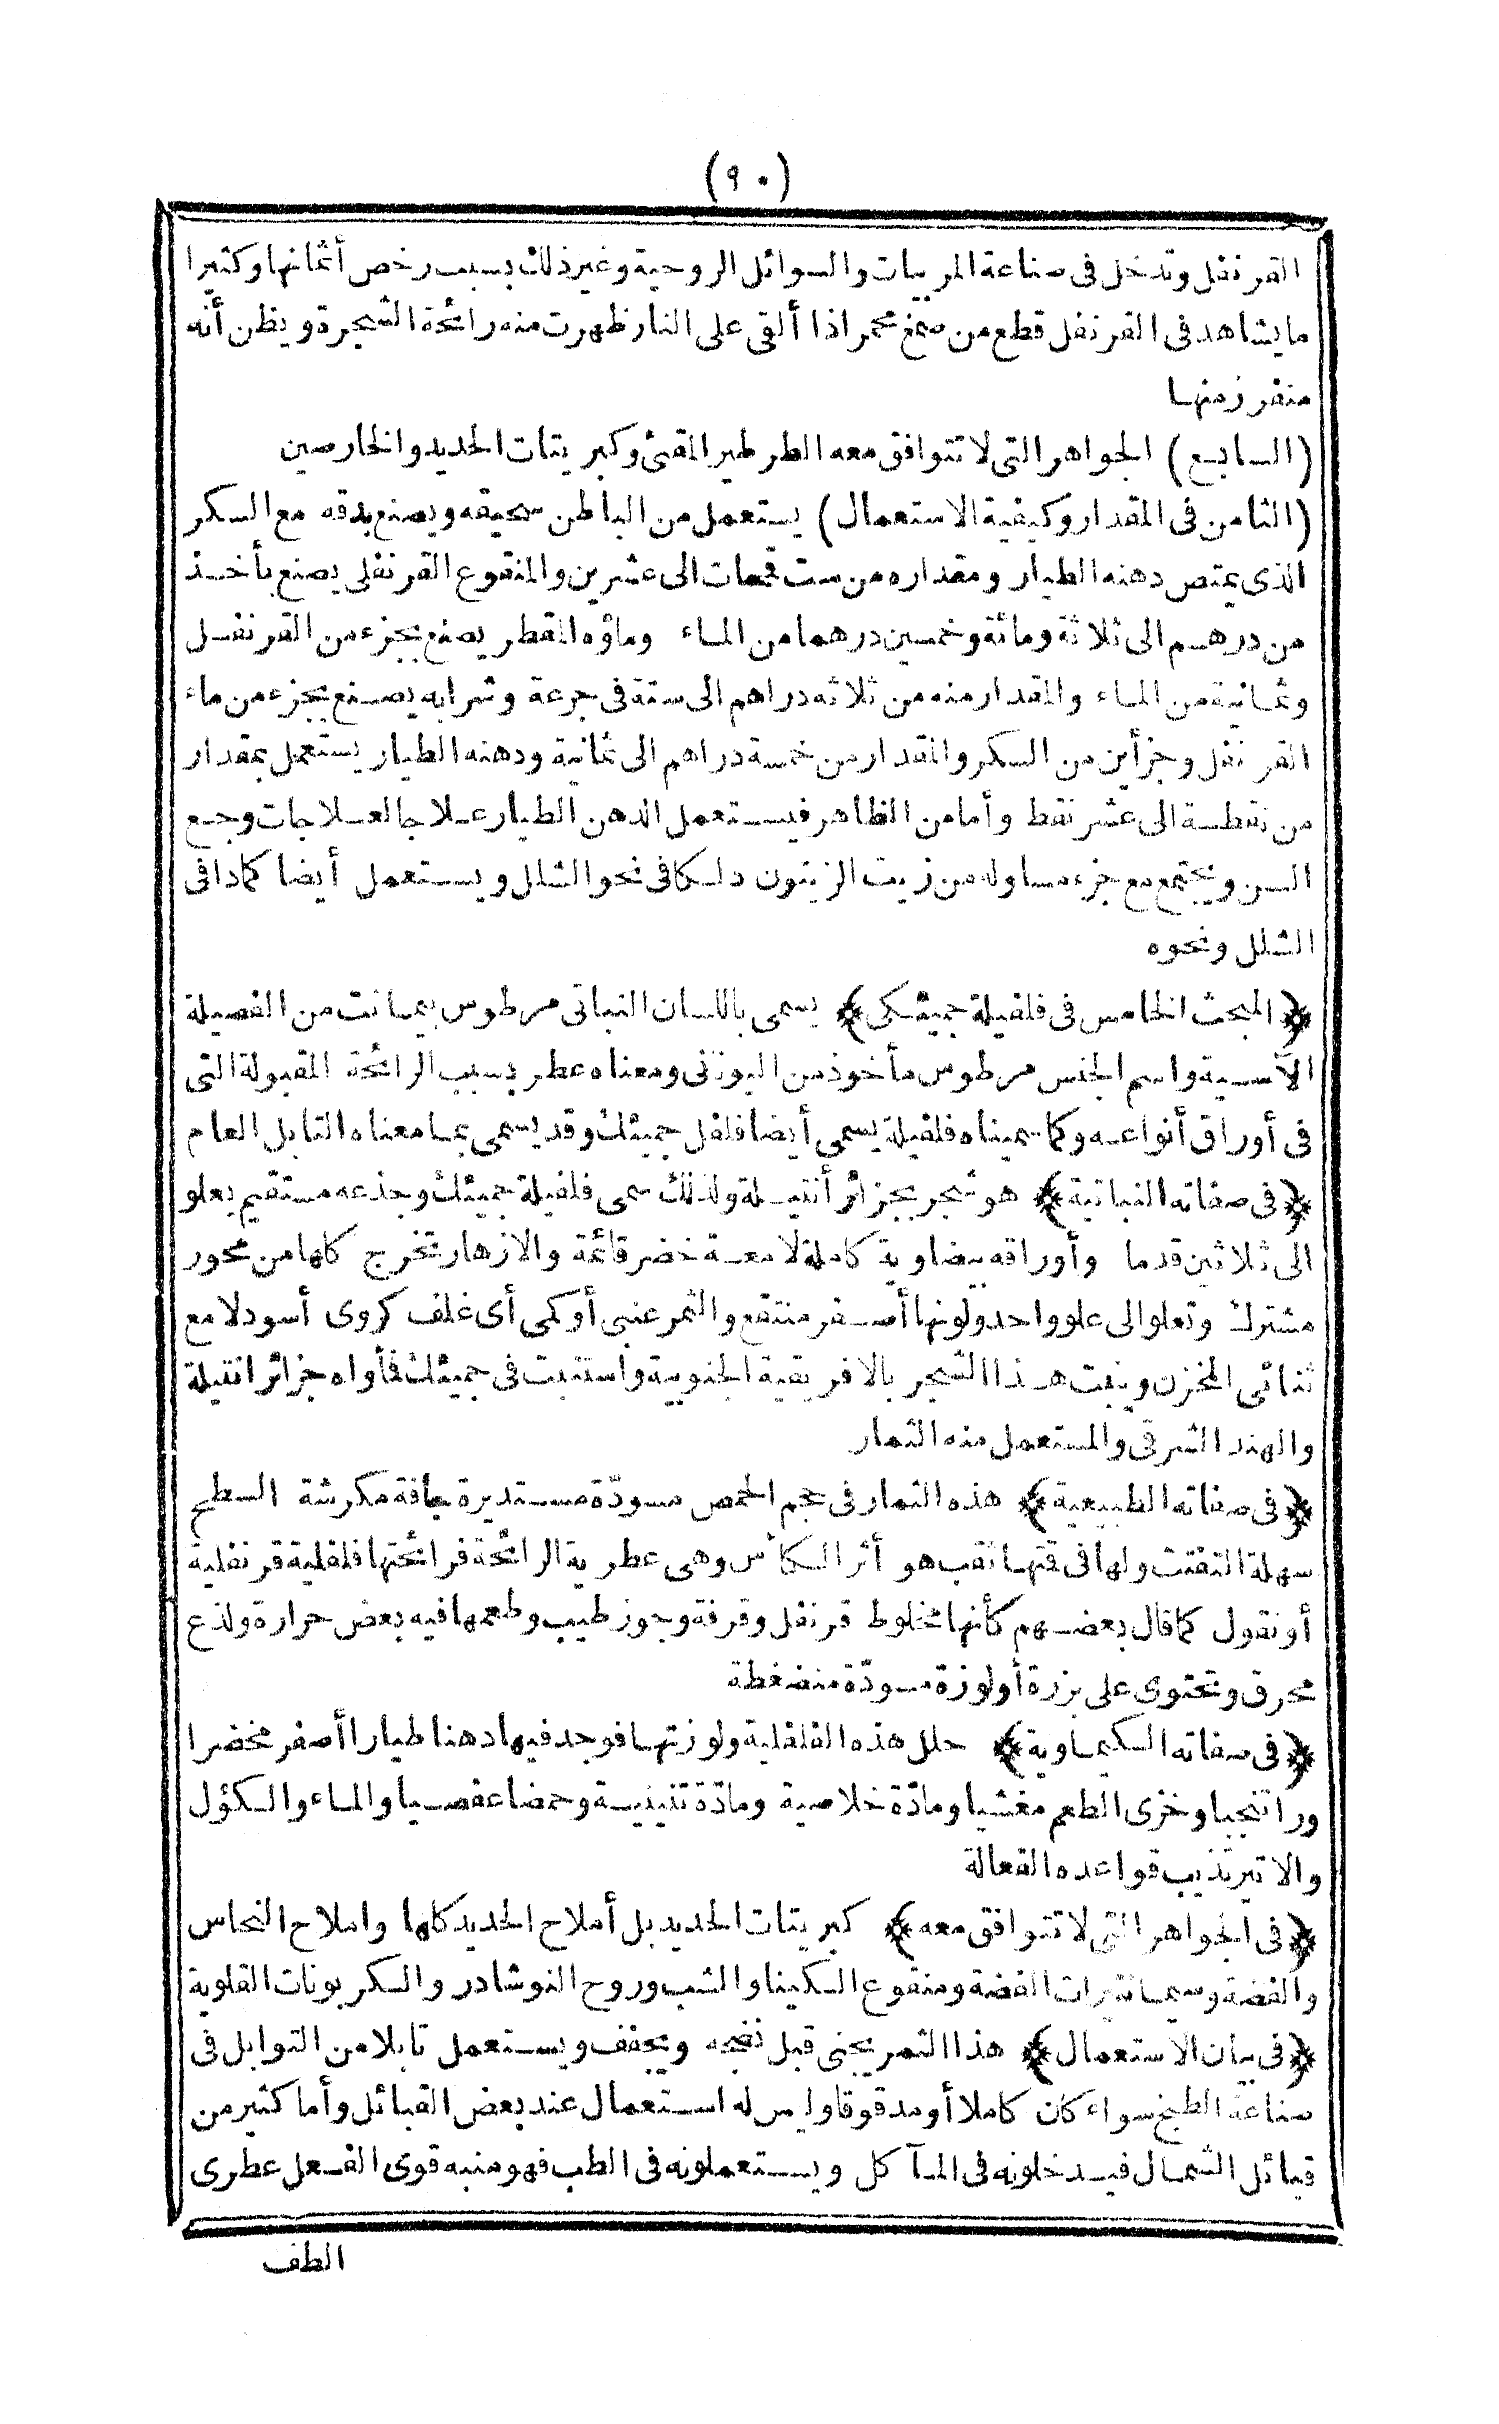 (٩٠)
القرنفل وتدخل فى صناعة المربيات والسوائل الروحية وغير ذلك بسبب رخص أثمانها وكثيرا
ما يشاهد فى القرنفل قطع من صمغ محمر اذا ألقى على النار ظهرت منه رائحة الشجرة ويظن أنه
منفرز منها
(السابع) الجواهر التى لا تتوافق معه الطرطير المقئ وكبريتات الحديد والخارصين
(الثامن فى المقدار وكيفية الاستعمال) يستعمل من الباطن سحيقه ويصنع بدقه مع السكر
الذى يمتص دهنه الطيار ومقداره من ست قمحات الى عشرين والمنقوع القرنفلى يصنع بأخذ
من درهم الى ثلاثة ومائة وخمسين درهما من الماء وماؤه المقطر يصنع بجزء من القرنفل
وثمانية من الماء والمقدار منه من ثلاثه دراهم الى ستة فى جرعة وشرابه يصنع بجزء من ماء
القرنفل وجزأين من السكر والمقدار من خمسة دراهم الى ثمانية ودهنه الطيار يستعمل بمقدار
من نقطة الى عشر نقط وأما من الظاهر فيستعمل الدهن الطيار علاجا لعلاجات وجع
السن ويجتمع مع جزء مساو له من زيت الزيتون دلكا فى نحو الشلل ويستعمل أيضا كمادا فى
الشلل ونحوه
﴿المبحث الخامس فى فلفيلة جميكى﴾ يسمى باللسان النباتى مرطوس بيمانت من الفصيلة
الآسية واسم الجنس مرطوس مأخوذ من اليونانى ومعناه عطر بسبب الرائحة المقبولة التى
فى أوراق أنواعه وكما سميناه فلفيلة يسمى أيضا فلفل جميك وقد يسمى بما معناه التابل العام
﴿فى صفاته النباتية﴾ هو شجر بجزائر أنتيلة ولذلك سمى فلفيلة جميك وجذعه مستقيم يعلو
الى ثلاثين قدما وأوراقه بيضاوية كاملة لامعة خضر قائمة والازهار تخرج كلها من محور
مشترك وتعلو الى علو واحد ولونها أصفر منتقع والثمر عنبى أو كمى أى غلف كروى أسود لامع
ثنائى المخزن وينبت هذا الشجر بالافريقية الجنوبية واستنبت فى جميك فأواه جزائر انتيلة
والهند الشرقى والمستعمل منه الثمار
﴿فى صفاته الطبيعية﴾ هذه الثمار فى حجم الحمص مسودّة مستديرة جافة مكرشة السطح
سهلة التفتت ولها فى قمتها ثقب هو أثر الكأس وهى عطرية الرائحة فرائحتها فلفلية قرنفلية
أو نقول كما قال بعضهم كأنها مخلوط قرنفل وقرفة وجوز طيب وطعمها فيه بعض حرارة ولذع
محرق وتحتوى على بزرة أو لوزة مسودّة منضغطة
﴿فى صفاته الكيماوية﴾ حلل هذه الفلفلية ولوزتها فوجد فيها دهنا طيارا أصفر مخضرا
وراتنجيا وخزى الطعم مغشيا ومادّة خلاصية ومادّة تنينية وحمضا عفصيا والماء والكؤل
والاتير تذيب قواعده الفعالة
﴿فى الجواهر التى لا تتوافق معه﴾ كبريتات الحديد بل أملاح الحديد كلها واملاح النحاس
والفضة وسيما نترات الفضة ومنقوع الكينا والشب وروح النوشادر والكربونات القلوية
﴿فى بيان الاستعمال﴾ هذا الثمر يجنى قبل نضجه ويجفف ويستعمل تابلا من التوابل فى
صناعة الطبخ سواء كان كاملا أو مدقوقا وليس له استعمال عند بعض القبائل وأما كثير من
قبائل الشمال فيدخلونه فى المآكل ويستعملونه فى الطب فهو منبه قوى الفعل عطرى
الطف